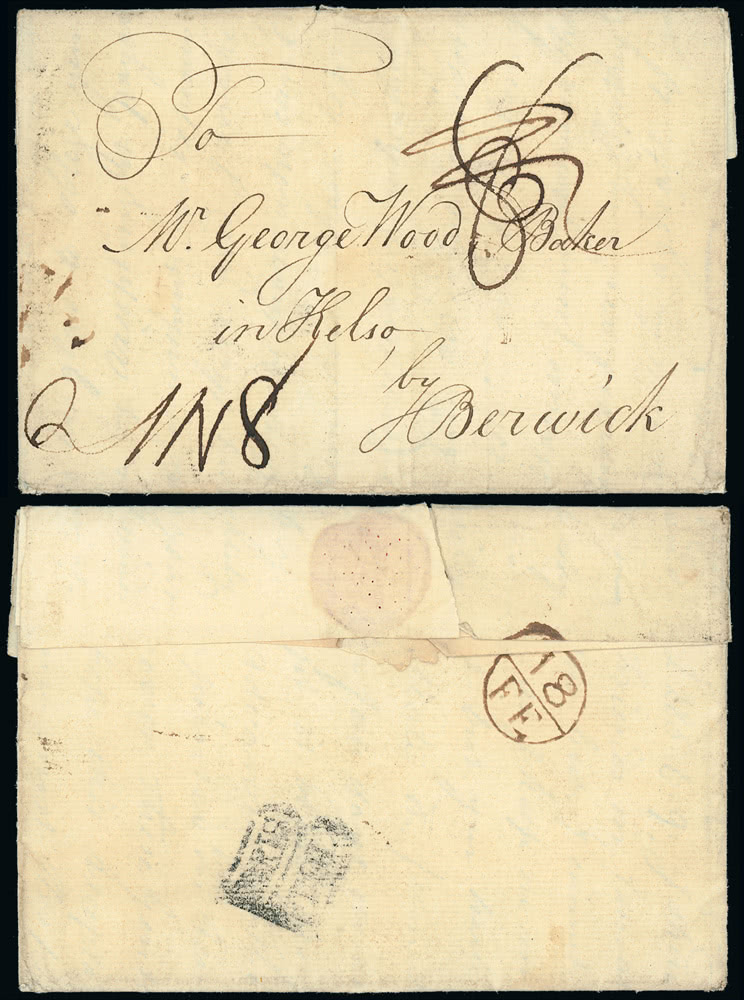 To
Mr. George Wood, Baker
in Kelso,
by
Berwick
1N8
18
FE